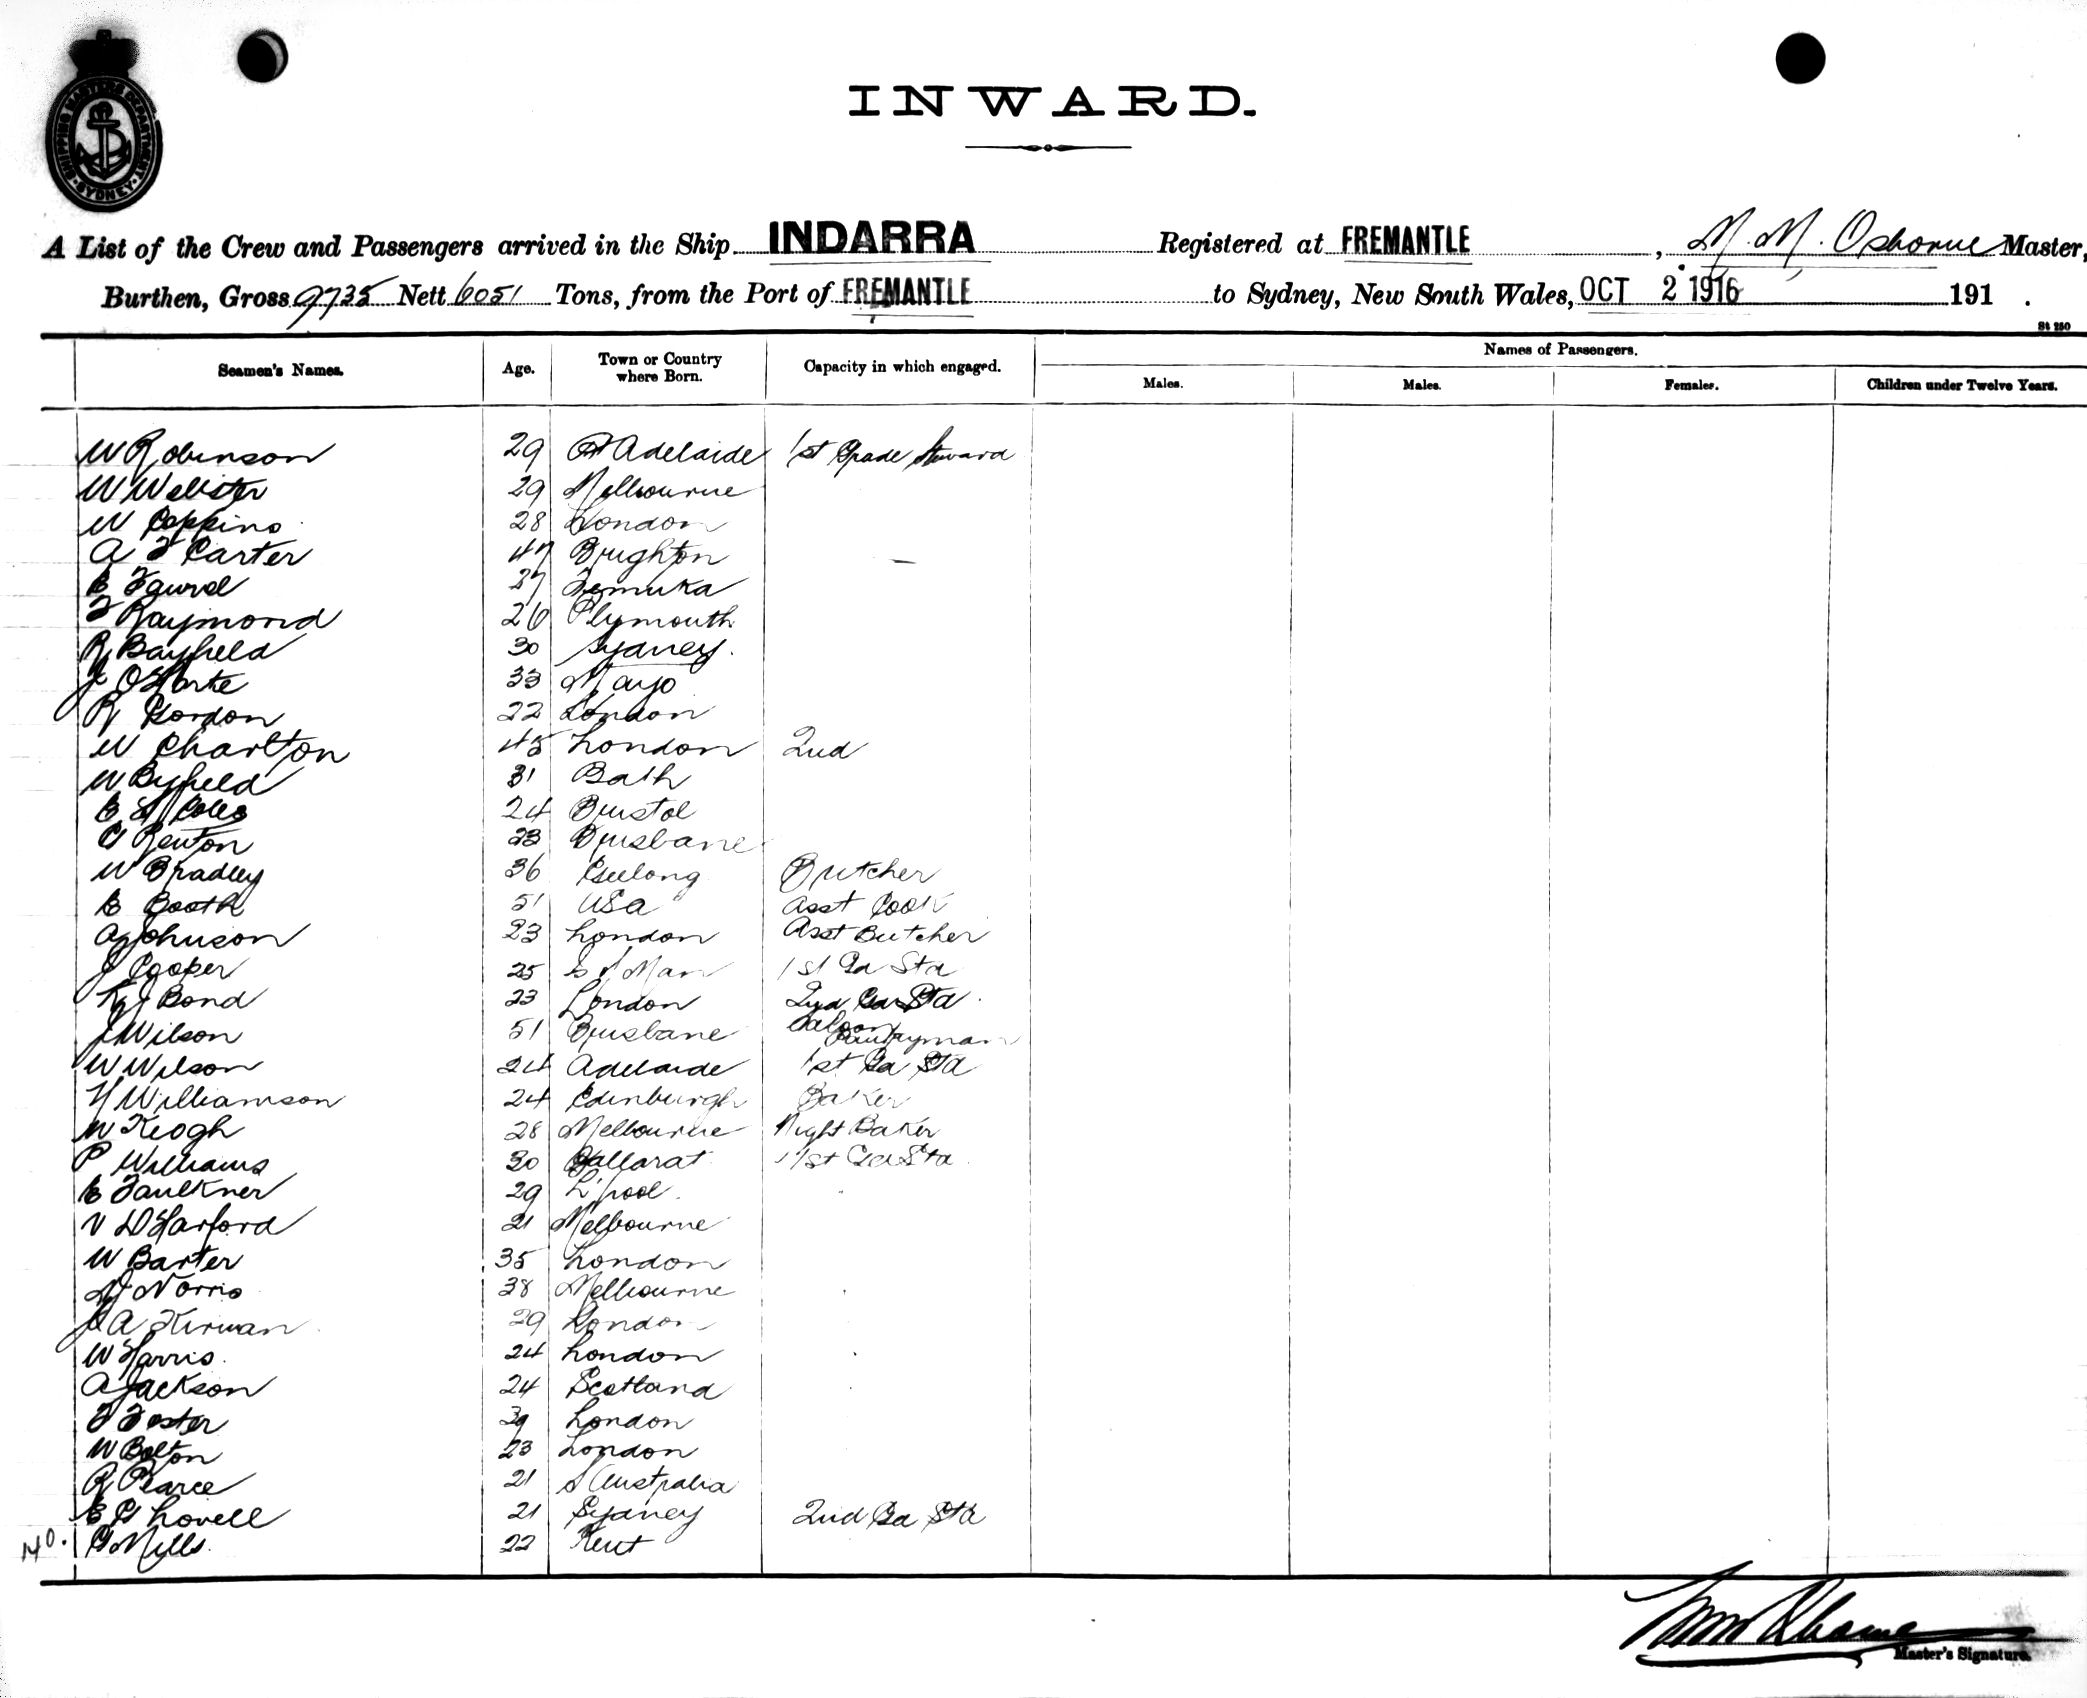 SHIPPING MASTER'S DEPARTMENT SYDNEY
INWARD.
A List of the Crew and Passengers arrived in the Ship INDARRA Registered at FREMANTLE, M. M. Osborne Master,
Burthen, Gross 9735 Nett 6051 Tons, from the Port of FREMANTLE to Sydney, New South Wales, OCT 2 1916 191 .
St 250
Seamen's Names. Age. Town or Country where Born. Capacity in which engaged. Names of Passengers.
Males. Males. Females. Children under Twelve Years.
W Robinson 29 Pt Adelaide 1st Grade Steward
W Webster 29 Melbourne
W Coppins 28 London
A F Carter 47 Brighton
E 27 Temuka
F Raymond 26 Plymouth
R Bayfield 30 Sydney.
J O'Harte 33 Mayo
R Gordon 22 London
W Charlton 45 London 2nd
W Byfield 31 Bath
E H Coles 24 Bristol
G Renton 23 Brisbane
W Bradley 36 Geelong Butcher
E Booth 51 USA Asst Cook
A Johnson 23 London Asst Butcher
J Cooper 25 I of Man 1st Gd Std
K J Bond 23 London 2nd Gd Std
J Wilson 51 Brisbane Saloon Pantryman
W Wilson 24 Adelaide 1st Gd Std
H Williamson 24 Edinburgh Baker
W Keogh 28 Melbourne Night Baker
P Williams 30 Ballarat 1st Gd Std
E Faulkner 29 L'pool
V D Harford 21 Melbourne
W Barter 35 London
D Norris 38 Melbourne
J A Kirwan 29 London
W Harris 24 London
A Jackson 24 Scotland
F Foster 39 London
W Bolton 23 London
R Pearce 21 S Australia
E G Lovell 21 Sydney 2nd Gd Std
140. G Mills 22 Kent
Master's Signature.